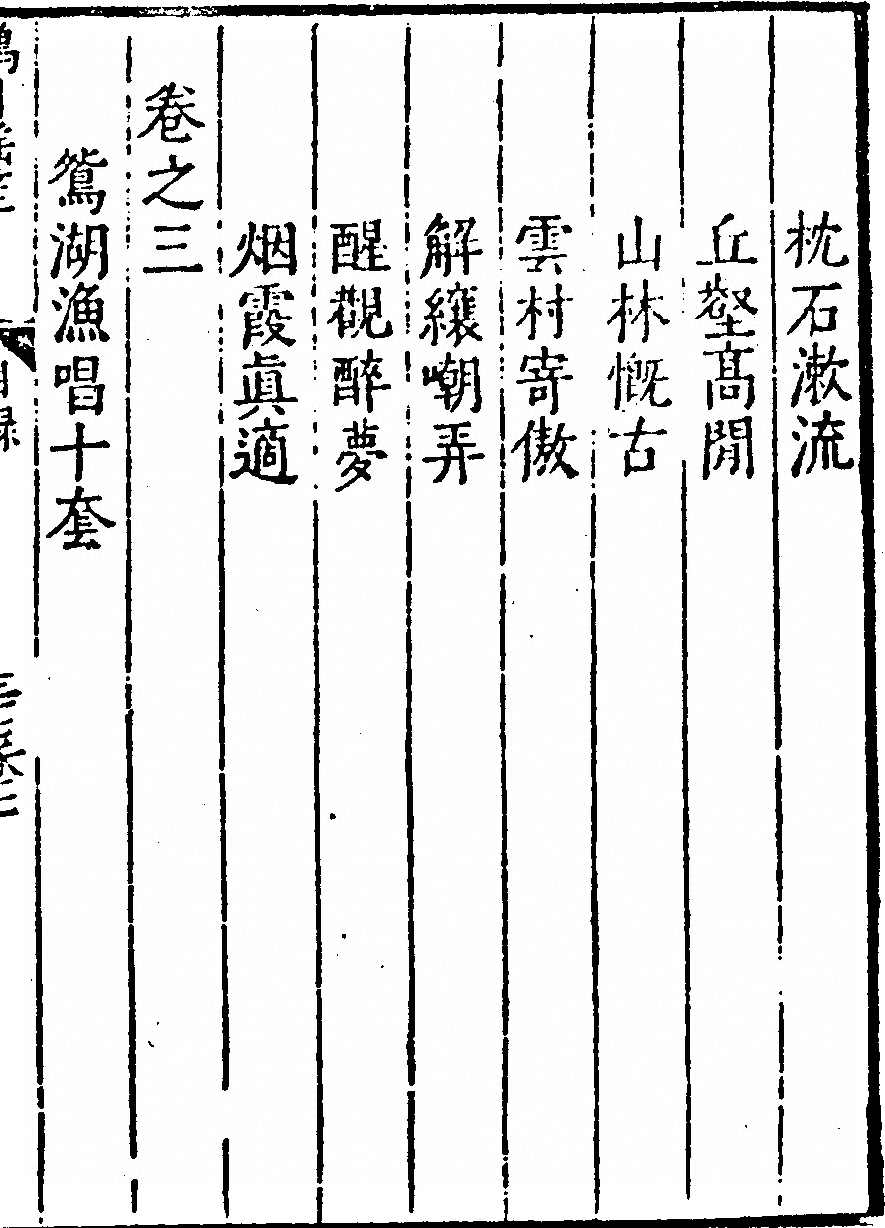 枕石漱流
丘壑高閒
山林慨古
雲村寄傲
解纕嘲弄
醒觀醉夢
烟霞眞適
卷之三
鴛湖漁唱十套
目録